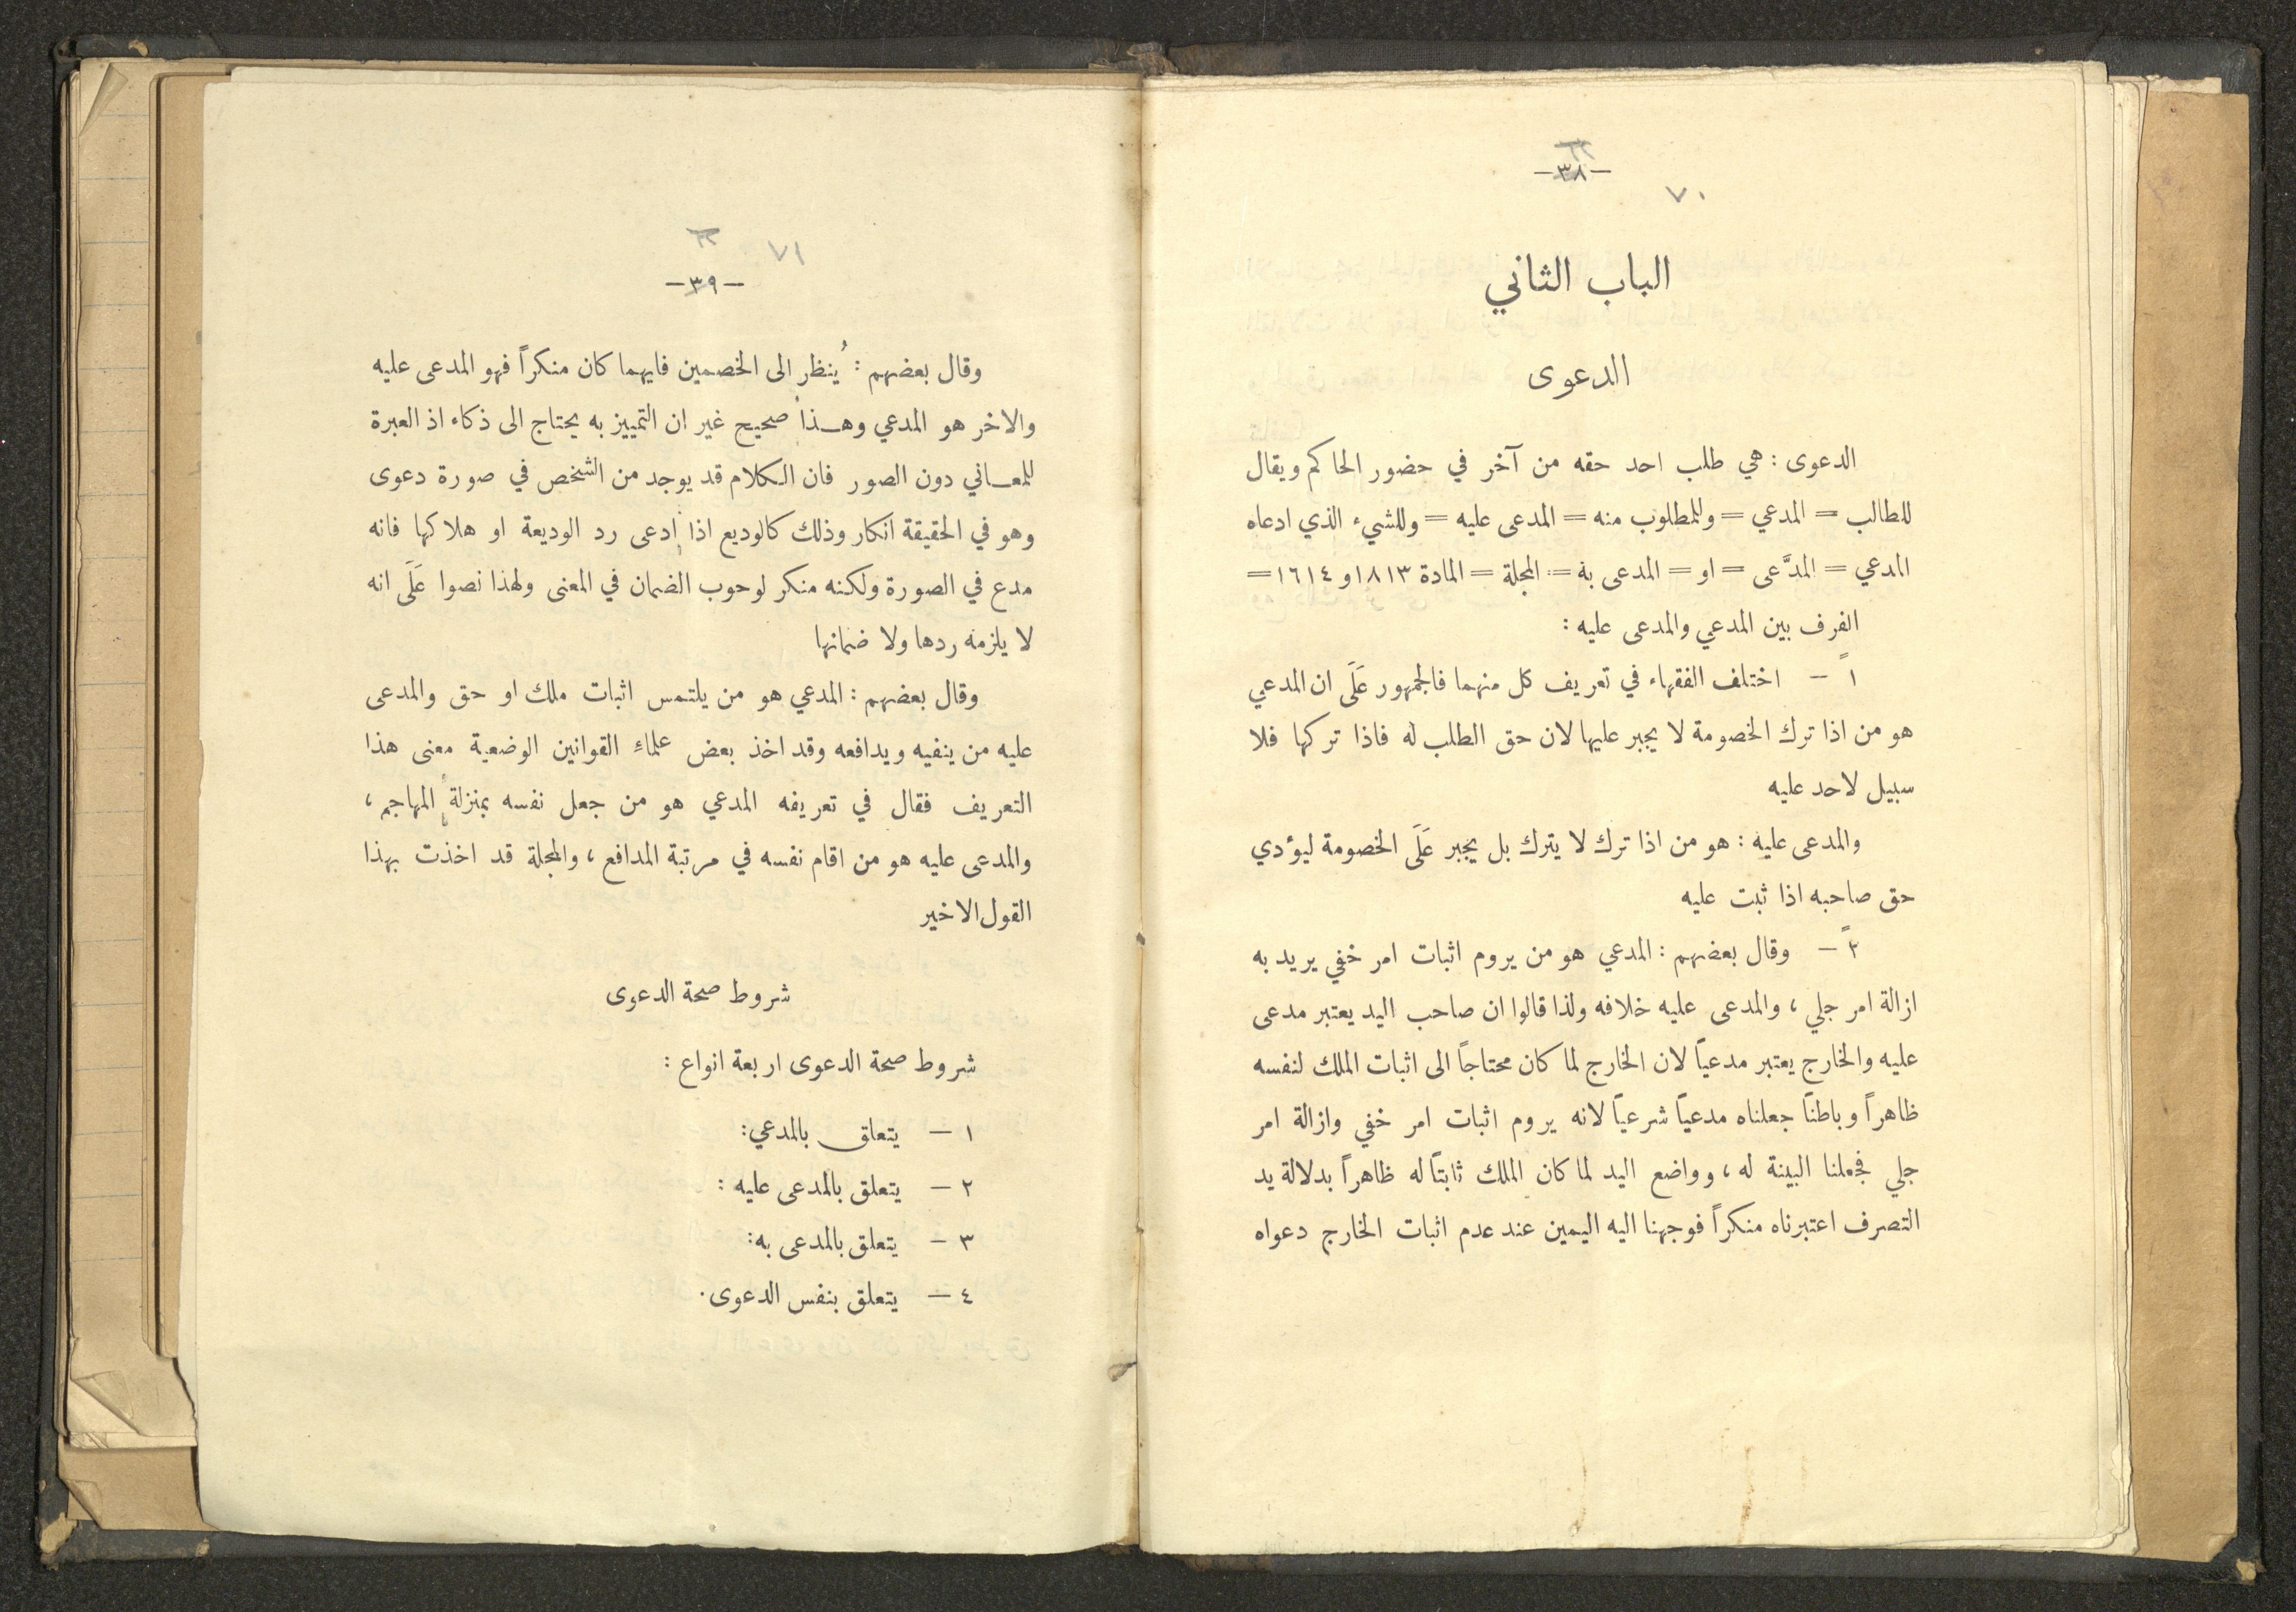 -٣٨-
٧٠
الباب الثاني
الدعوى
الدعوى : هي طلب احد حقه من آخر في حضور الحاكم ويقال
للطالب = المدعي = وللمطلوب منه = المدعى عليه = وللشيء الذي ادعاه
المدعي = المدَّعى = او = المدعى به = المجلة = المادة ١٨١٣ و ١٦١٤ =
الفرف بين المدعي والمدعى عليه :
١ً - اختلف الفقهاء في تعريف كل منهما فالجمهور عَلَى ان المدعي
هو من اذا ترك الخصومة لا يجبر عليها لان حق الطلب له فاذا تركها فلا
سبيل لاحد عليه
والمدعى عليه : هو من اذا ترك لا يترك بل يجبر عَلَى الخصومة ليؤدي
حق صاحبه اذا ثبت عليه
٢ً - وقال بعضهم : المدعي هو من يروم اثبات امر خفي يريد به
ازالة امر جلي ، والمدعى عليه خلافه ولذا قالوا ان صاحب اليد يعتبر مدعى
عليه والخارج يعتبر مدعياً لان الخارج لما كان محتاجاً الى اثبات الملك لنفسه
ظاهراً وباطناً جعلناه مدعياً شرعياً لانه يروم اثبات امر خفي وازالة امر
جلي فجعلنا البينة له ، وواضع اليد لما كان الملك ثابتاً له ظاهراً بدلالة يد
التصرف اعتبرناه منكراً فوجهنا اليه اليمين عند عدم اثبات الخارج دعواه
٧١
-٣٩-
وقال بعضهم : يُنظر الى الخصمين فايهما كان منكراً فهو المدعى عليه
والاخر هو المدعي وهذا صحيح غير ان التمييز به يحتاج الى ذكاء اذ العبرة
للمعاني دون الصور فان الكلام قد يوجد من الشخص في صورة دعوى
وهو في الحقيقة انكار وذلك كالوديع اذا ادعى رد الوديعة او هلاكها فانه
مدع في الصورة ولكنه منكر لوحوب الضمان في المعنى ولهذا نصوا عَلَى انه
لا يلزمه ردها ولا ضمانها
وقال بعضهم : المدعي هو من يلتمس اثبات ملك او حق والمدعى
عليه من ينفيه ويدافعه وقد اخذ بعض علماء القوانين الوضعية معنى هذا
التعريف فقال في تعريفه المدعي هو من جعل نفسه بمنزلة المهاجم ،
والمدعى عليه هو من اقام نفسه في مرتبة المدافع ، والمجلة قد اخذت بهذا
القول الاخير
شروط صحة الدعوى
شروط صحة الدعوى اربعة انواع :
١ - يتعلق بالمدعي:
٢ - يتعلق بالمدعى عليه :
٣ - يتعلق بالمدعى به:
٤ - يتعلق بنفس الدعوى.